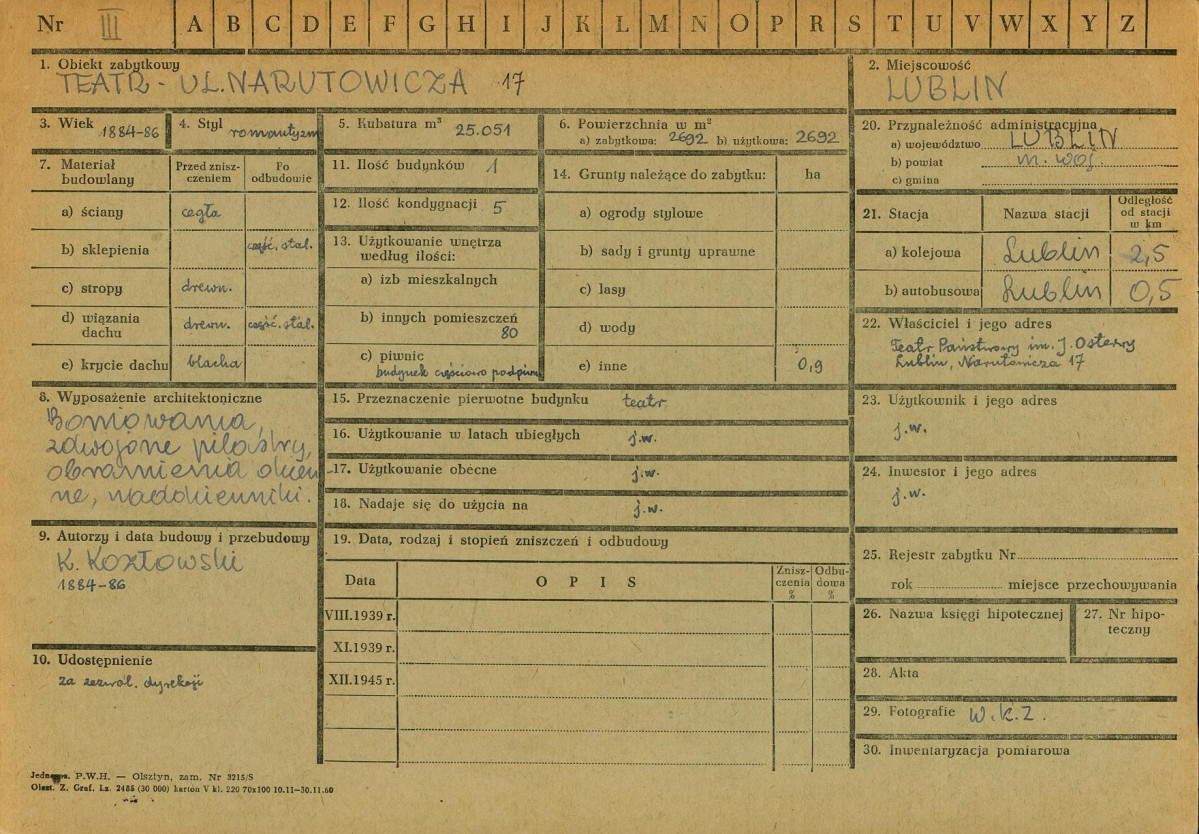 Nr III A B C D E F G H I J K L M N O P R S T U V W X Y Z
1. Obiekt zabytkowy
TEATR - UL. NARUTOWICZA 17
2. Miejscowość
LUBLIN
3. Wiek 1884-86
4. Styl romantyzm
5. Kubatura m³ 25.051
6. Powierzchnia w m²
a) zabytkowa: 2692 b) użytkowa: 2692
20. Przynależność administracyjna
a) województwo LUBLIN
b) powiat m. woj.
c) gmina
7. Materiał budowlany
Przed zniszczeniem
Po odbudowie
a) ściany cegła
b) sklepienia część. stal.
c) stropy drewn.
d) wiązania dachu drewn. część. stal.
e) krycie dachu blacha
11. Ilość budynków 1
12. Ilość kondygnacji 5
13. Użytkowanie wnętrza
według ilości:
a) izb mieszkalnych
b) innych pomieszczeń
80
c) piwnic
budynek częściowo podpiwn.
14. Grunty należące do zabytku: ha
a) ogrody stylowe
b) sady i grunty uprawne
c) lasy
d) wody
e) inne 0,9
21. Stacja
Nazwa stacji
Odległość
od stacji
w km
a) kolejowa Lublin 2,5
b) autobusowa Lublin 0,5
22. Właściciel i jego adres
Teatr Państwowy im. J. Osterwy
Lublin, Narutowicza 17
8. Wyposażenie architektoniczne
Boniowania,
zdwojone pilastry,
obramienia okien
ne, nadokienniki.
15. Przeznaczenie pierwotne budynku teatr
16. Użytkowanie w latach ubiegłych j.w.
17. Użytkowanie obecne j.w.
18. Nadaje się do użycia na j.w.
23. Użytkownik i jego adres
j.w.
24. Inwestor i jego adres
j.w.
9. Autorzy i data budowy i przebudowy
K. Kozłowski
1884-86
19. Data, rodzaj i stopień zniszczeń i odbudowy
Data
O P I S
Znisz-
czenia
%
Odbu-
dowa
%
VIII.1939 r.
XI.1939 r.
XII.1945 r.
25. Rejestr zabytku Nr
rok miejsce przechowywania
26. Nazwa księgi hipotecznej
27. Nr hipo-
teczny
10. Udostępnienie
za zezwol. dyrekcji
28. Akta
29. Fotografie W.K.Z.
30. Inwentaryzacja pomiarowa
P.W.H. — Olsztyn, zam. Nr 3215/S
Olszt. Z. Graf. Lz. 2485 (30 000) karton V kl. 220 70x100 10.11—30.11.60